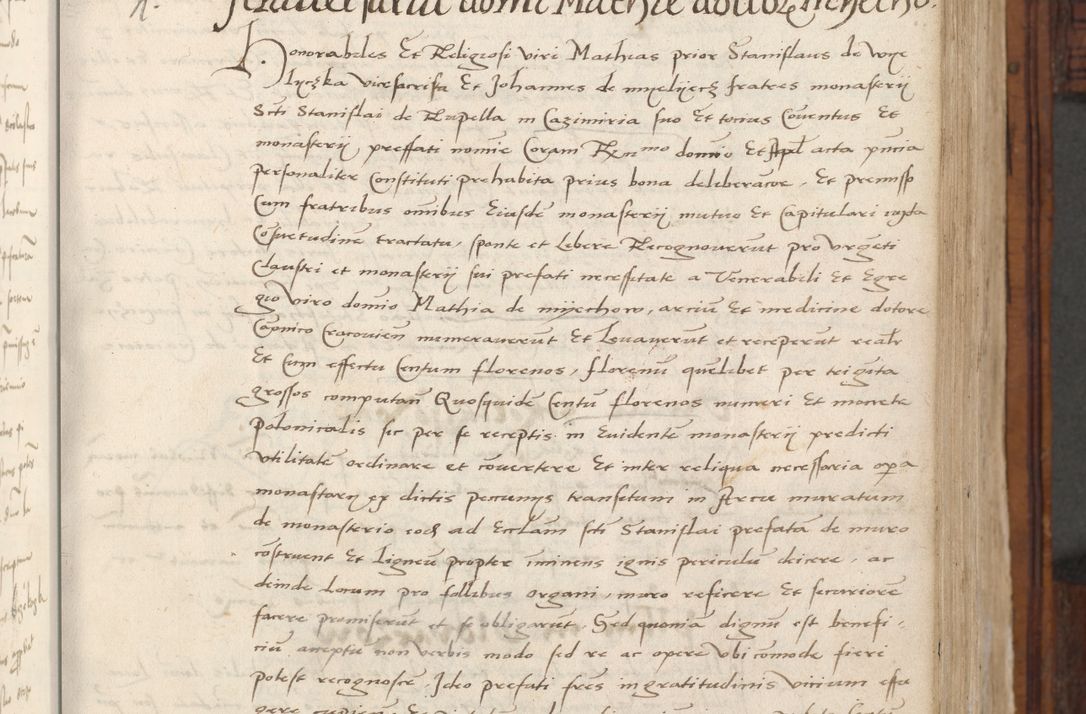 domini Mathie doctoris
Honorabiles Et Religiosi viri Mathias prior Stanislaus de wye
lyczka vicesacrista Et Johannes de myelyecz fratres monasterij
Scti Stanislai de Rupella in Cazimiria suo Et tocius Coventus Et
monasterij preffati nomine Coram Rxen mo domino Et Apl acta pncia
personaliter Constituti prehabita prius bona deliberacone, Et premisso
Cum fratribus omnibus Eiusde monasterij mutuo Et Capitulari iuxta
Cosuetudine tractatu, sponte et libere Recognoverut pro urgeti
Claustri et monasterij sui prefati necessitate a Venerabili Et Egre
gio viro domino Mathia de miechow, arciu Et medicine dotore
Canonico Cracovien numeraverut Et Levaverut et receperut realr
Et Cum effectu Centum florenos, florenu quelibet per triginta
grossos computan Quosquide Centu florenos numeri Et monete
polonicalis sic per se receptis in Evidente monasterij predicti
utilitate ordinare et covertere Et inter reliqua necessaria opa
monastarij ex dictis peccunijs transitum in Arcu muratum
de monasterio eod ad Ecclam scti Stanislai prefata de muro
costruent Et ligneu propter iminens ignis periculu deicere, ac
deinde locum pro follibus organi, muro reficere Et securiore
facere promiserut et se obligarut. Sed quonia dignu est benefi,
ciu acceptu non verbis modo sed re ac opere ubi comode fieri
potest recognosce. Ideo prefati fres ingratitudinis vicium effu